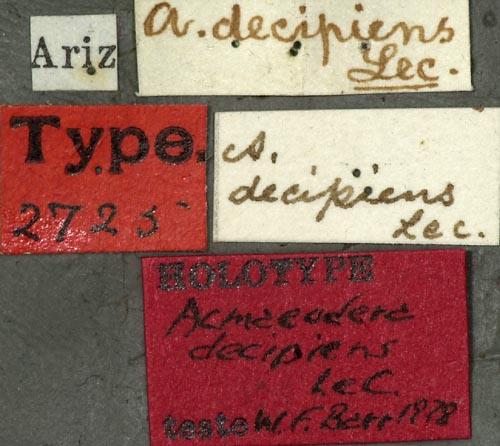 Ariz
A. decipiens
Lec.
Type.
2725
A.
decipiens
Lec.
HOLOTYPE
Acmaeodera
decipiens
LeC.
teste W.F. Barr 1978